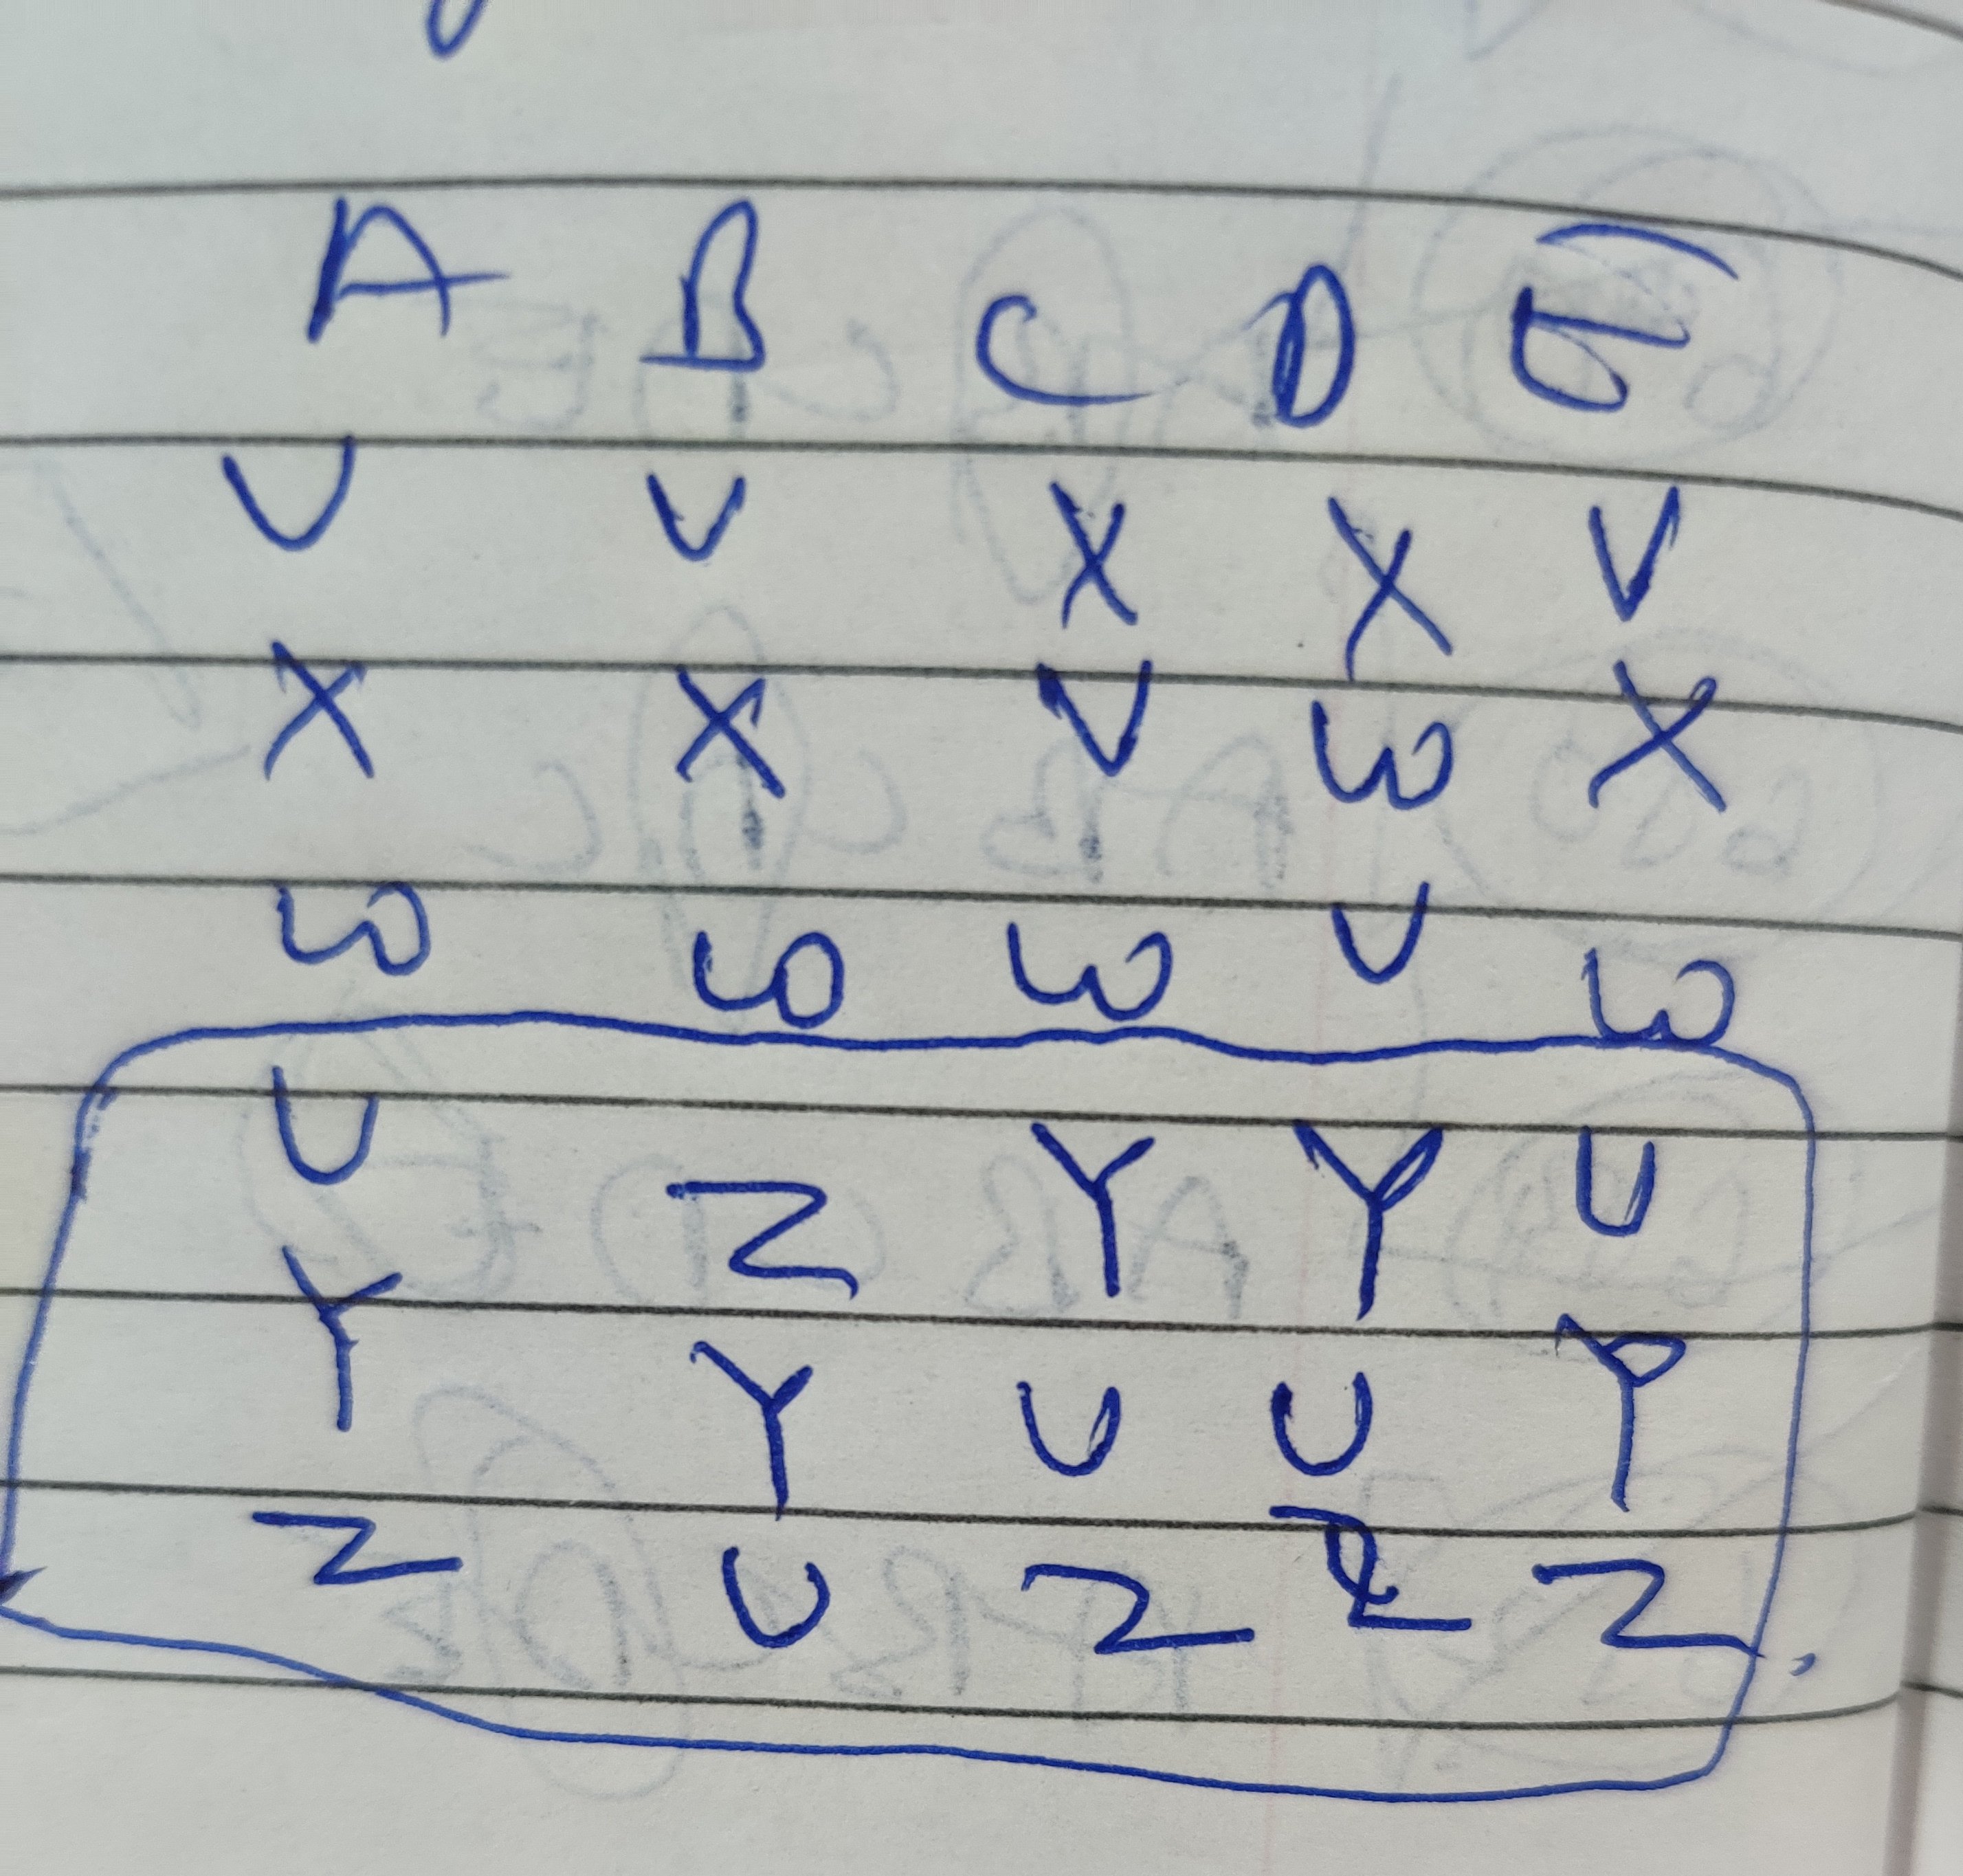 A B C D E
V V X X V
X X V W X
W W W V W
U Z Y Y U
Y Y U U Y
Z U Z Z Z